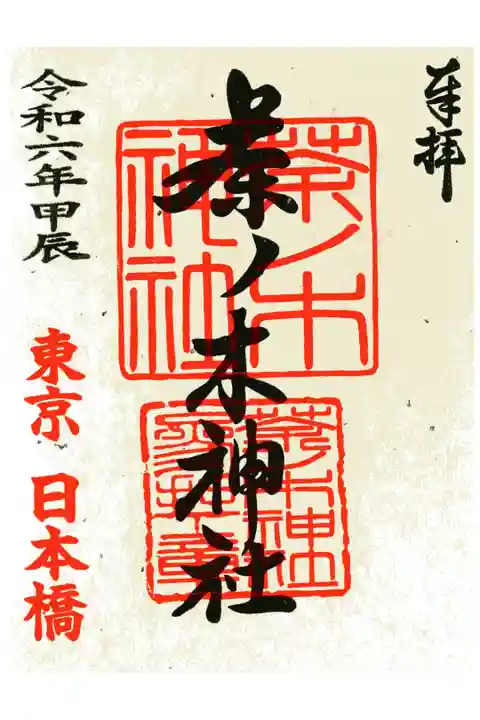 奉拝
茶ノ木神社
茶ノ木
神社
茶ノ木神社
令和六年甲辰
東京 日本橋